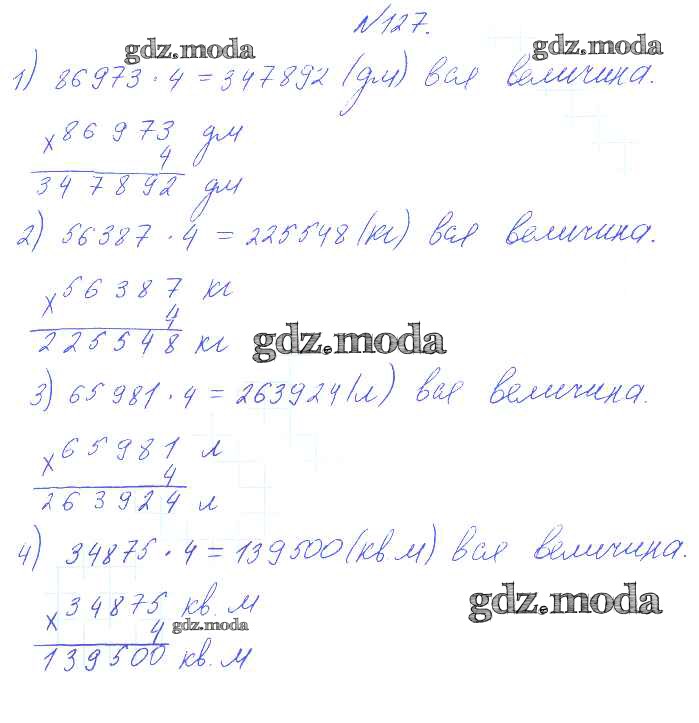 №127.
gdz.moda gdz.moda
1) 86973 · 4 = 347892 (дм) вся величина.
x 86973 дм
4
347892 дм
2) 56387 · 4 = 225548 (кг) вся величина.
x 56387 кг
4
225548 кг
gdz.moda
3) 65981 · 4 = 263924 (л) вся величина.
x 65981 л
4
263924 л
4) 34875 · 4 = 139500 (кв.м) вся величина.
x 34875 кв.м
gdz.moda
4 gdz.moda
139500 кв.м